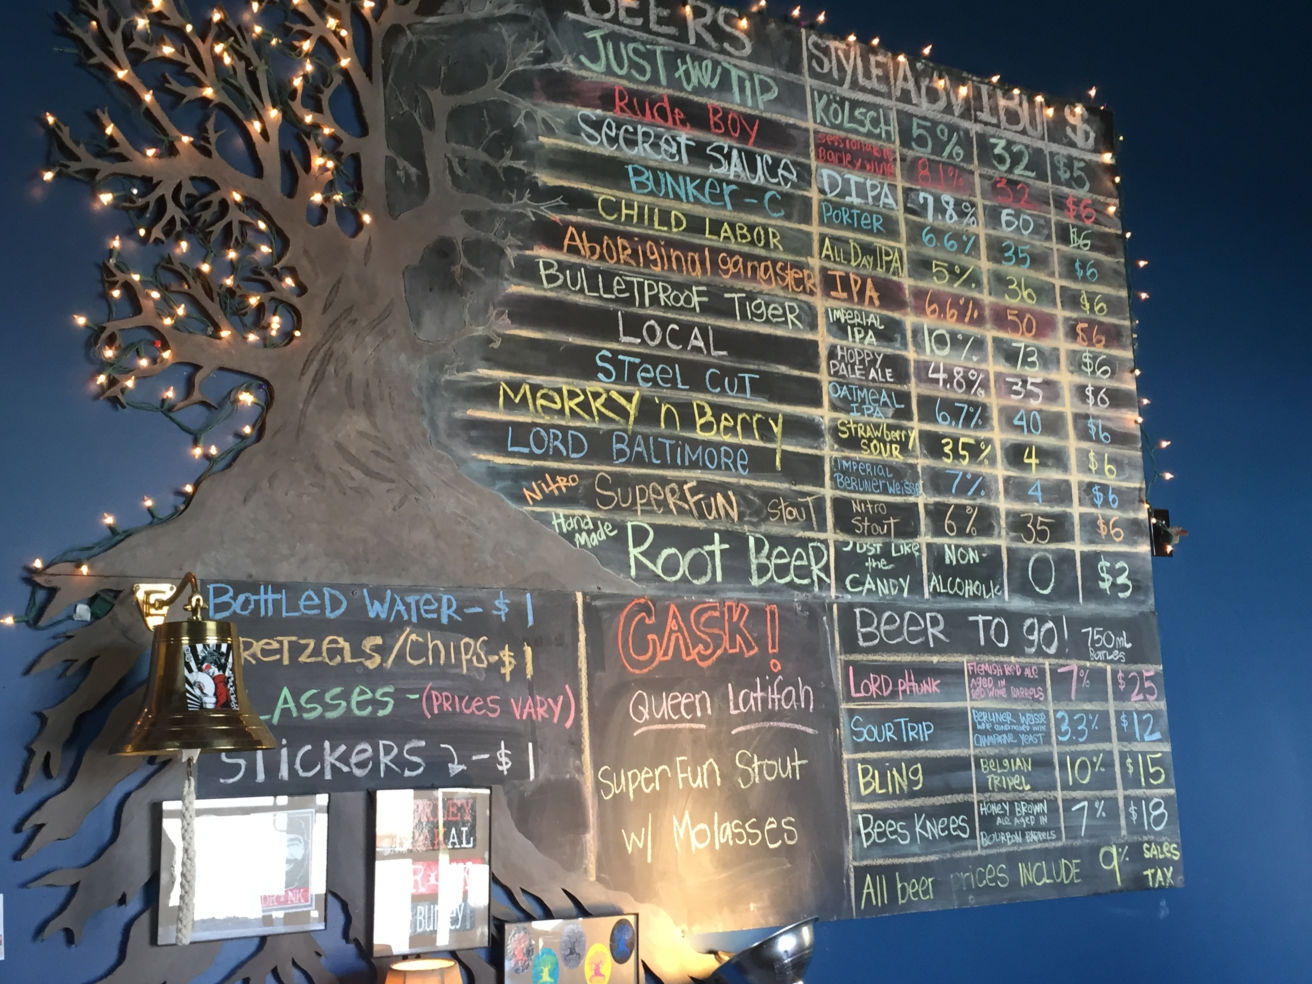 BEERS STYLE ABV IBU $
JUST the TIP KÖLSCH 5% 32 $5
Rude BOY Sessionable Barley wine 8.1% 32 $6
Secret SAUCE DIPA 7.8% 60 $6
BUNKER-C PORTER 6.6% 35 $6
CHILD LABOR All Day IPA 5% 36 $6
Aboriginal gangster IPA 6.6% 50 $6
BULLETPROOF TIGER IMPERIAL IPA 10% 73 $6
LOCAL HOPPY PALE ALE 4.8% 35 $6
STEEL CUT OATMEAL IPA 6.7% 40 $6
MERRY 'n Berry STRAWBERRY SOUR 3.5% 4 $6
LORD BALTIMORE IMPERIAL Berliner Weisse 7% 4 $6
Nitro SUPERFUN STOUT Nitro Stout 6% 35 $6
Hand Made Root Beer JUST LIKE the CANDY NON-ALCOHOLIC 0 $3
BOttLED WATER - $1
RETZELS/Chips - $1
LASSES - (PRICES VARY)
STICKERS 2 - $1
CASK!
Queen Latifah
Super Fun Stout
w/ Molasses
BEER TO GO! 750mL Bottles
LORD PHUNK FLEMISH RED ALE AGED IN RED WINE BARRELS 7% $25
SOUR TRIP BERLINER WEISSE CHAMPAGNE YEAST 3.3% $12
BLING BELGIAN TRIPEL 10% $15
Bees KNEES HONEY BROWN ALE AGED IN BOURBON BARRELS 7% $18
All beer prices INCLUDE 9% SALES TAX